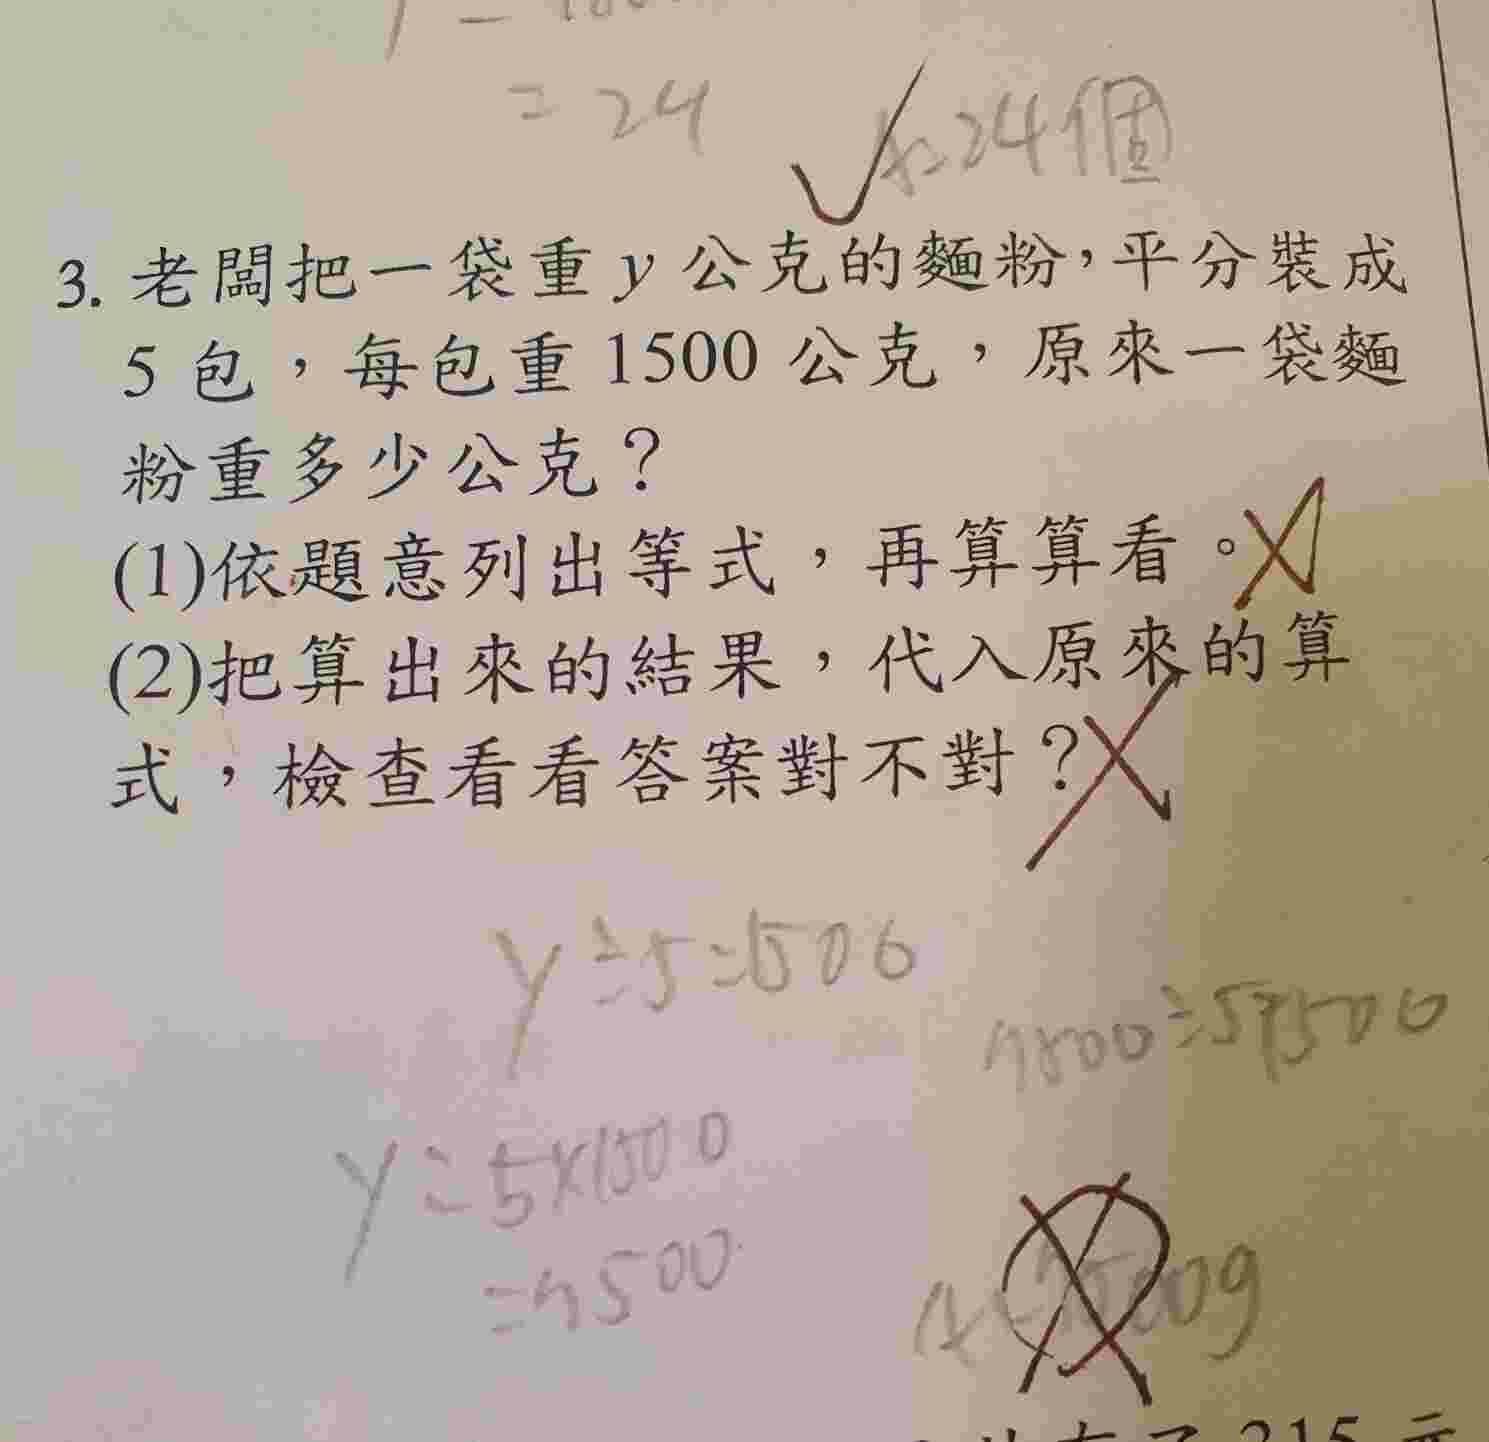 = 24
A:24個
3. 老闆把一袋重 y 公克的麵粉,平分裝成
5 包,每包重 1500 公克,原來一袋麵
粉重多少公克?
(1)依題意列出等式,再算算看。
(2)把算出來的結果,代入原來的算
式,檢查看看答案對不對?
y÷5=1500
7500÷5=1500
y=5×1500
=7500